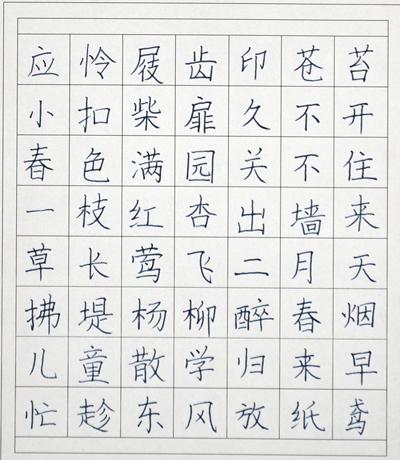 应怜屐齿印苍苔
小扣柴扉久不开
春色满园关不住
一枝红杏出墙来
草长莺飞二月天
拂堤杨柳醉春烟
儿童散学归来早
忙趁东风放纸鸢